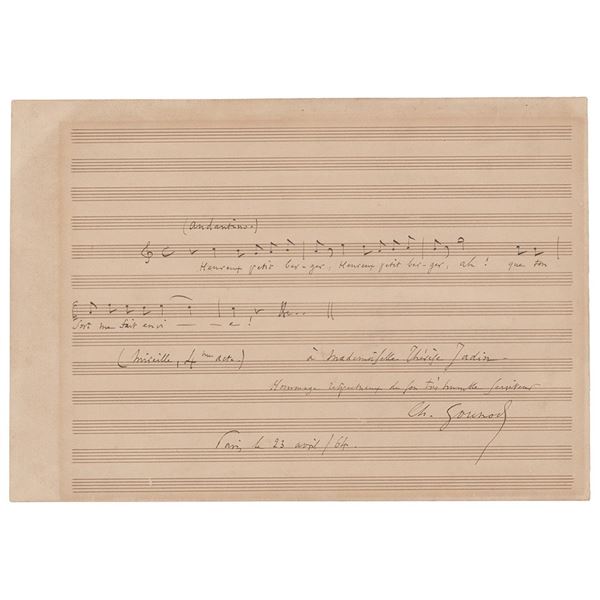 (Andantino)
Heureux petit ber-ger, Heureux petit ber-ger, ah! que ton
sort me fait envi - - - e!
(Mireille, 4me acte)
à Mademoiselle Thérèse Jadin.
Hommage respectueux de son très humble serviteur
Ch. Gounod
Paris le 23 avril/64.